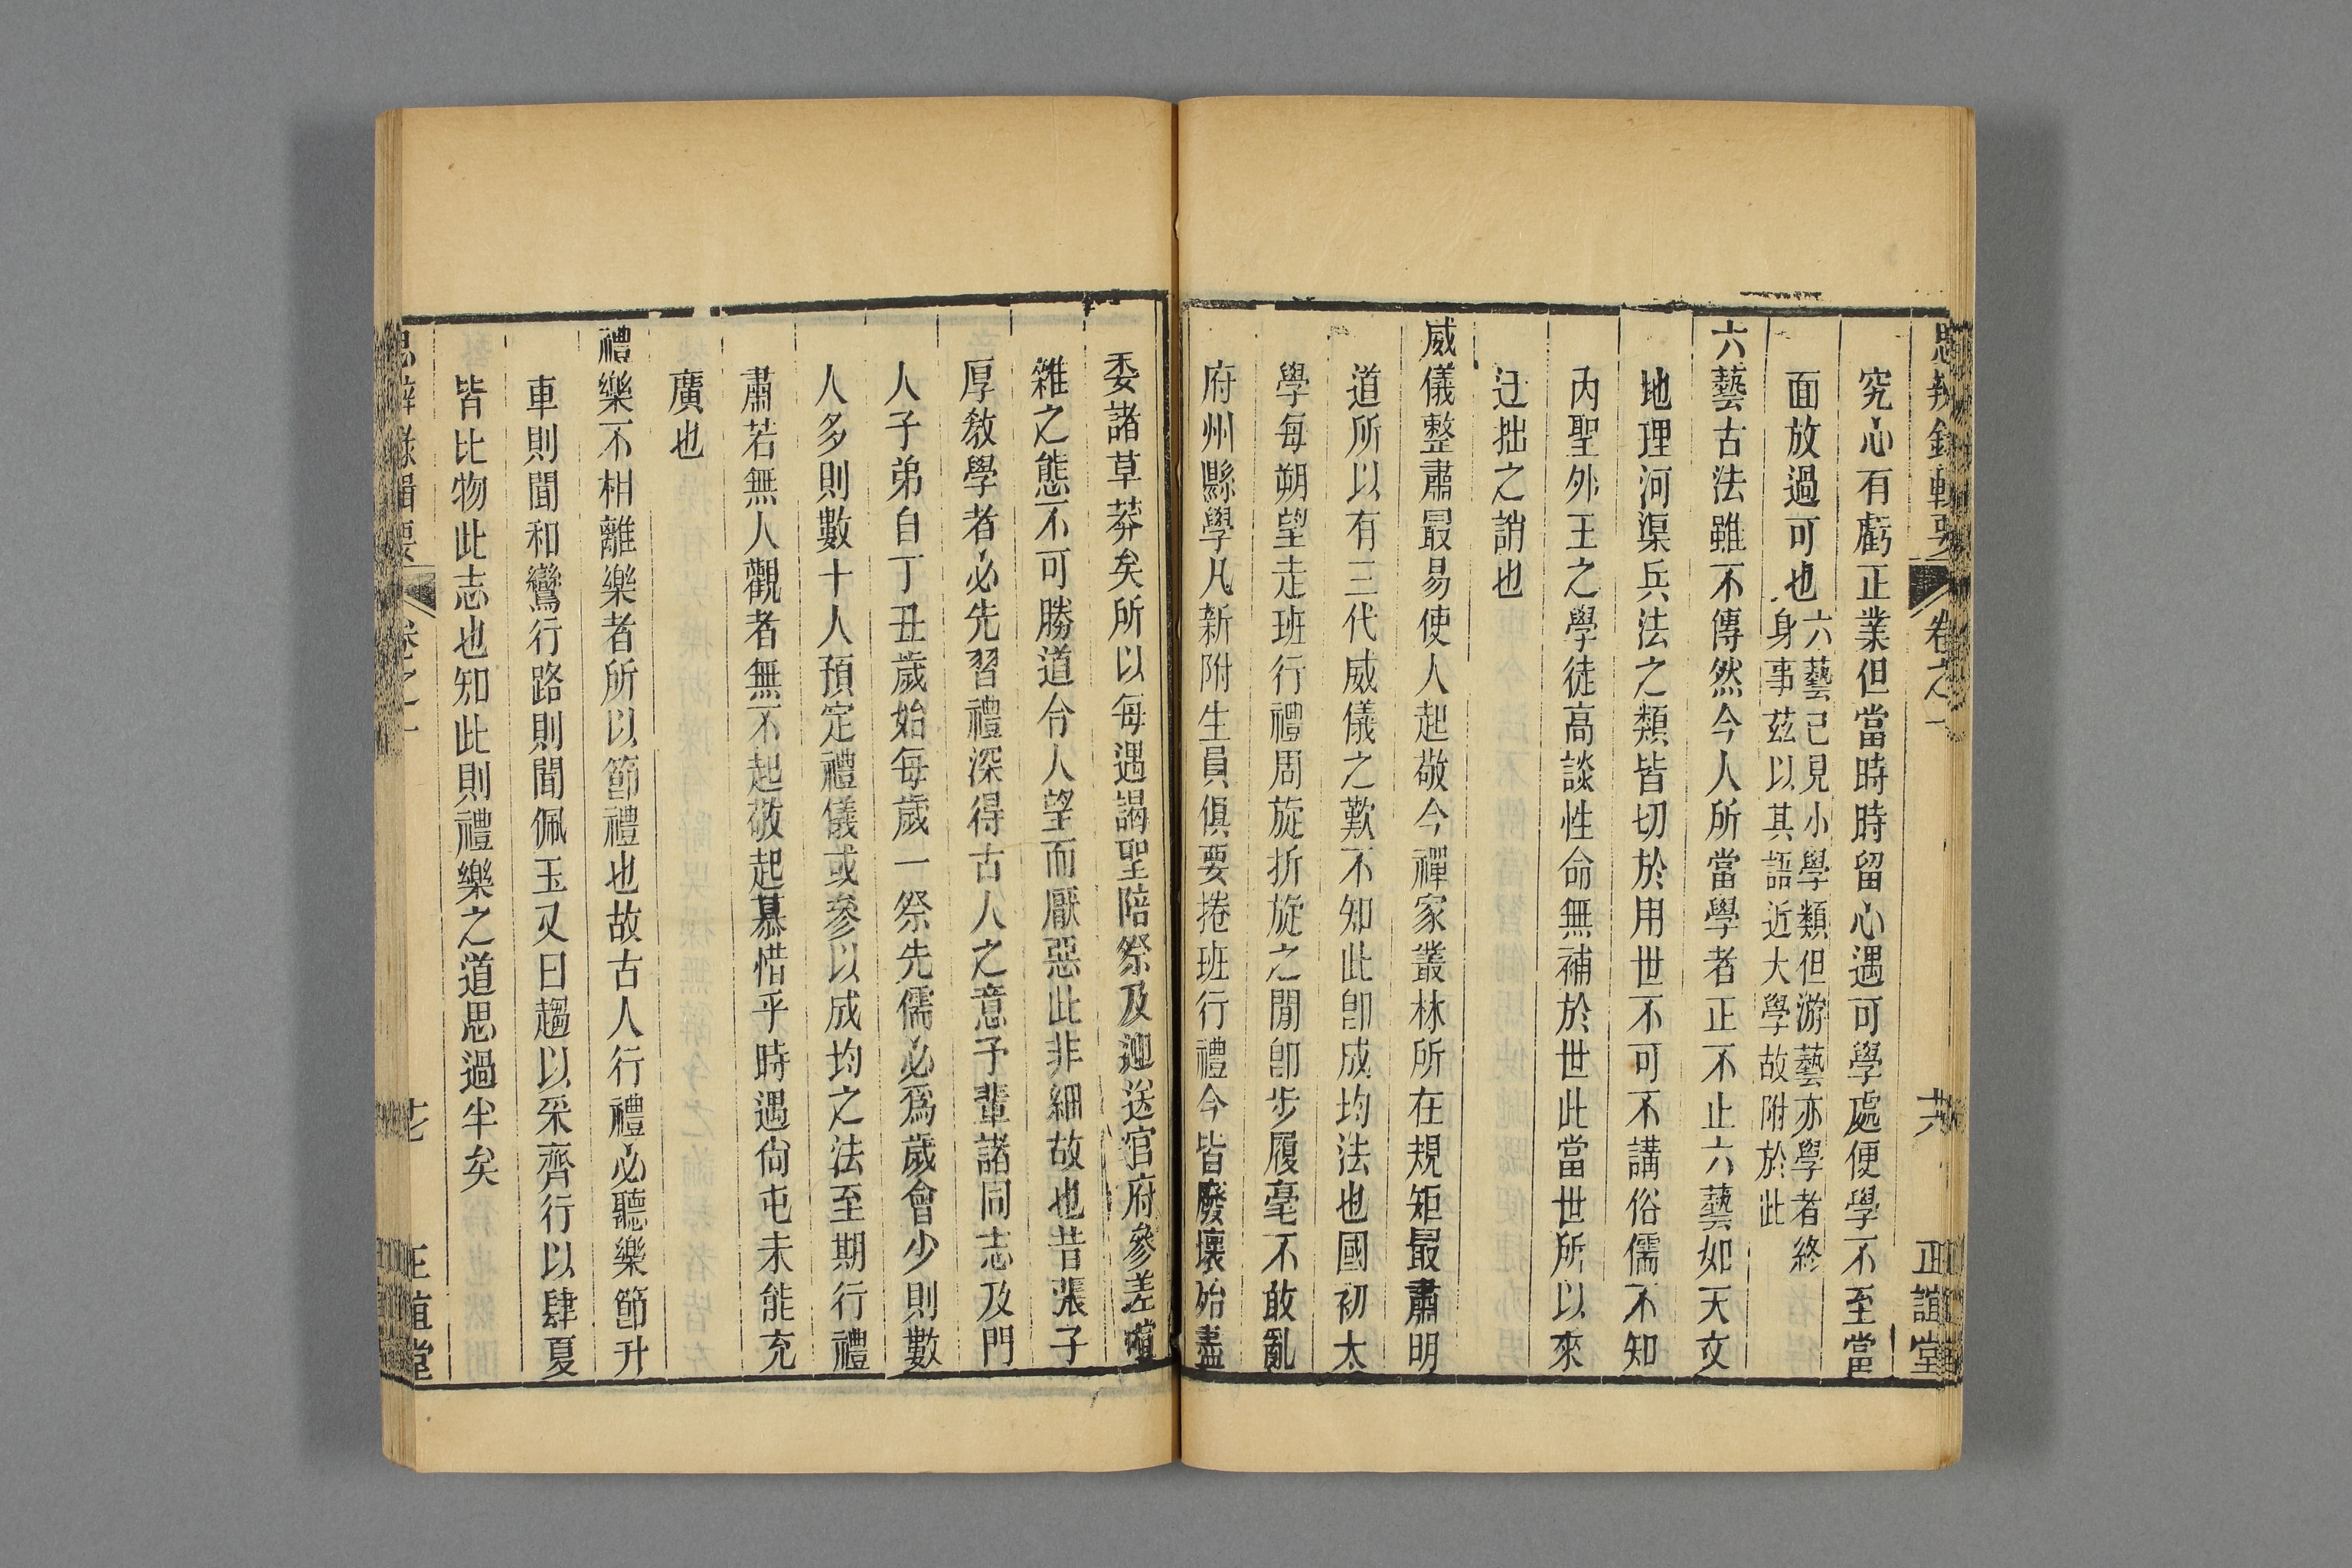 思辨錄輯要 卷之一 共 正誼堂
究心有虧正業但當時時留心遇可學處便學不至當
面放過可也六藝已見小學類但游藝亦學者終
身事茲以其語近大學故附於此
六藝古法雖不傳然今人所當學者正不止六藝如天文
地理河渠兵法之類皆切於用世不可不講俗儒不知
內聖外王之學徒高談性命無補於世此當世所以來
迂拙之誚也
威儀整肅最易使人起敬今禪家叢林所在規矩最肅明
道所以有三代威儀之歎不知此卽成均法也國初太
學每朔望走班行禮周旋折旋之閒卽步履毫不敢亂
府州縣學凡新附生員俱要捲班行禮今皆廢壞殆盡
委諸草莽矣所以每遇謁聖陪祭及迎送官府參差喧
雜之態不可勝道令人望而厭惡此非細故也昔張子
厚敎學者必先習禮深得古人之意予輩諸同志及門
人子弟自丁丑歲始每歲一祭先儒必爲歲會少則數
人多則數十人預定禮儀或參以成均之法至期行禮
肅若無人觀者無不起敬起慕惜乎時遇尙屯未能充
廣也
禮樂不相離樂者所以節禮也故古人行禮必聽樂節升
車則聞和鸞行路則聞佩玉又曰趨以采齊行以肆夏
皆比物此志也知此則禮樂之道思過半矣
思辨錄輯要 卷之一 正誼堂